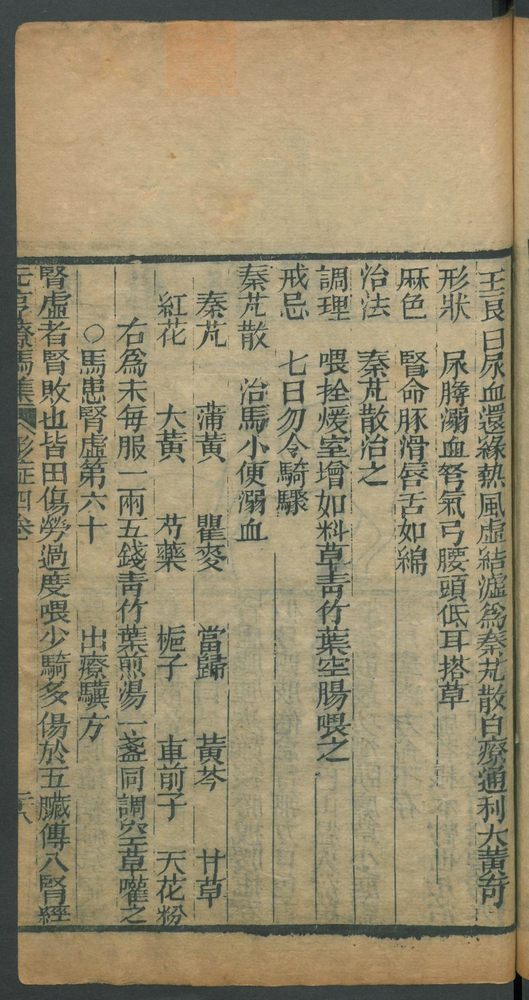 王良曰尿血還緣熱風虛結滤為秦艽散自療通利大黃奇
形狀　尿脬溺血弩氣弓腰頭低耳搭草
脉色　腎命豚滑唇舌如綿
治法　秦艽散治之
調理　喂拴煖室增加料草青竹葉空腸喂之
戒忌　七日勿令騎驟
秦艽散　治馬小便溺血
秦艽　蒲黃　瞿麥　當歸　黃芩　甘草
紅花　大黃　芍藥　梔子　車前子　天花粉
右為末每服一兩五錢青竹葉煎湯一盞同調空草嚾之
○馬患腎虛第六十　出療驥方
腎虛者腎敗也皆田傷勞過度喂少騎多傷於五臟傳八腎經
元亨療馬集　形症四卷　三八